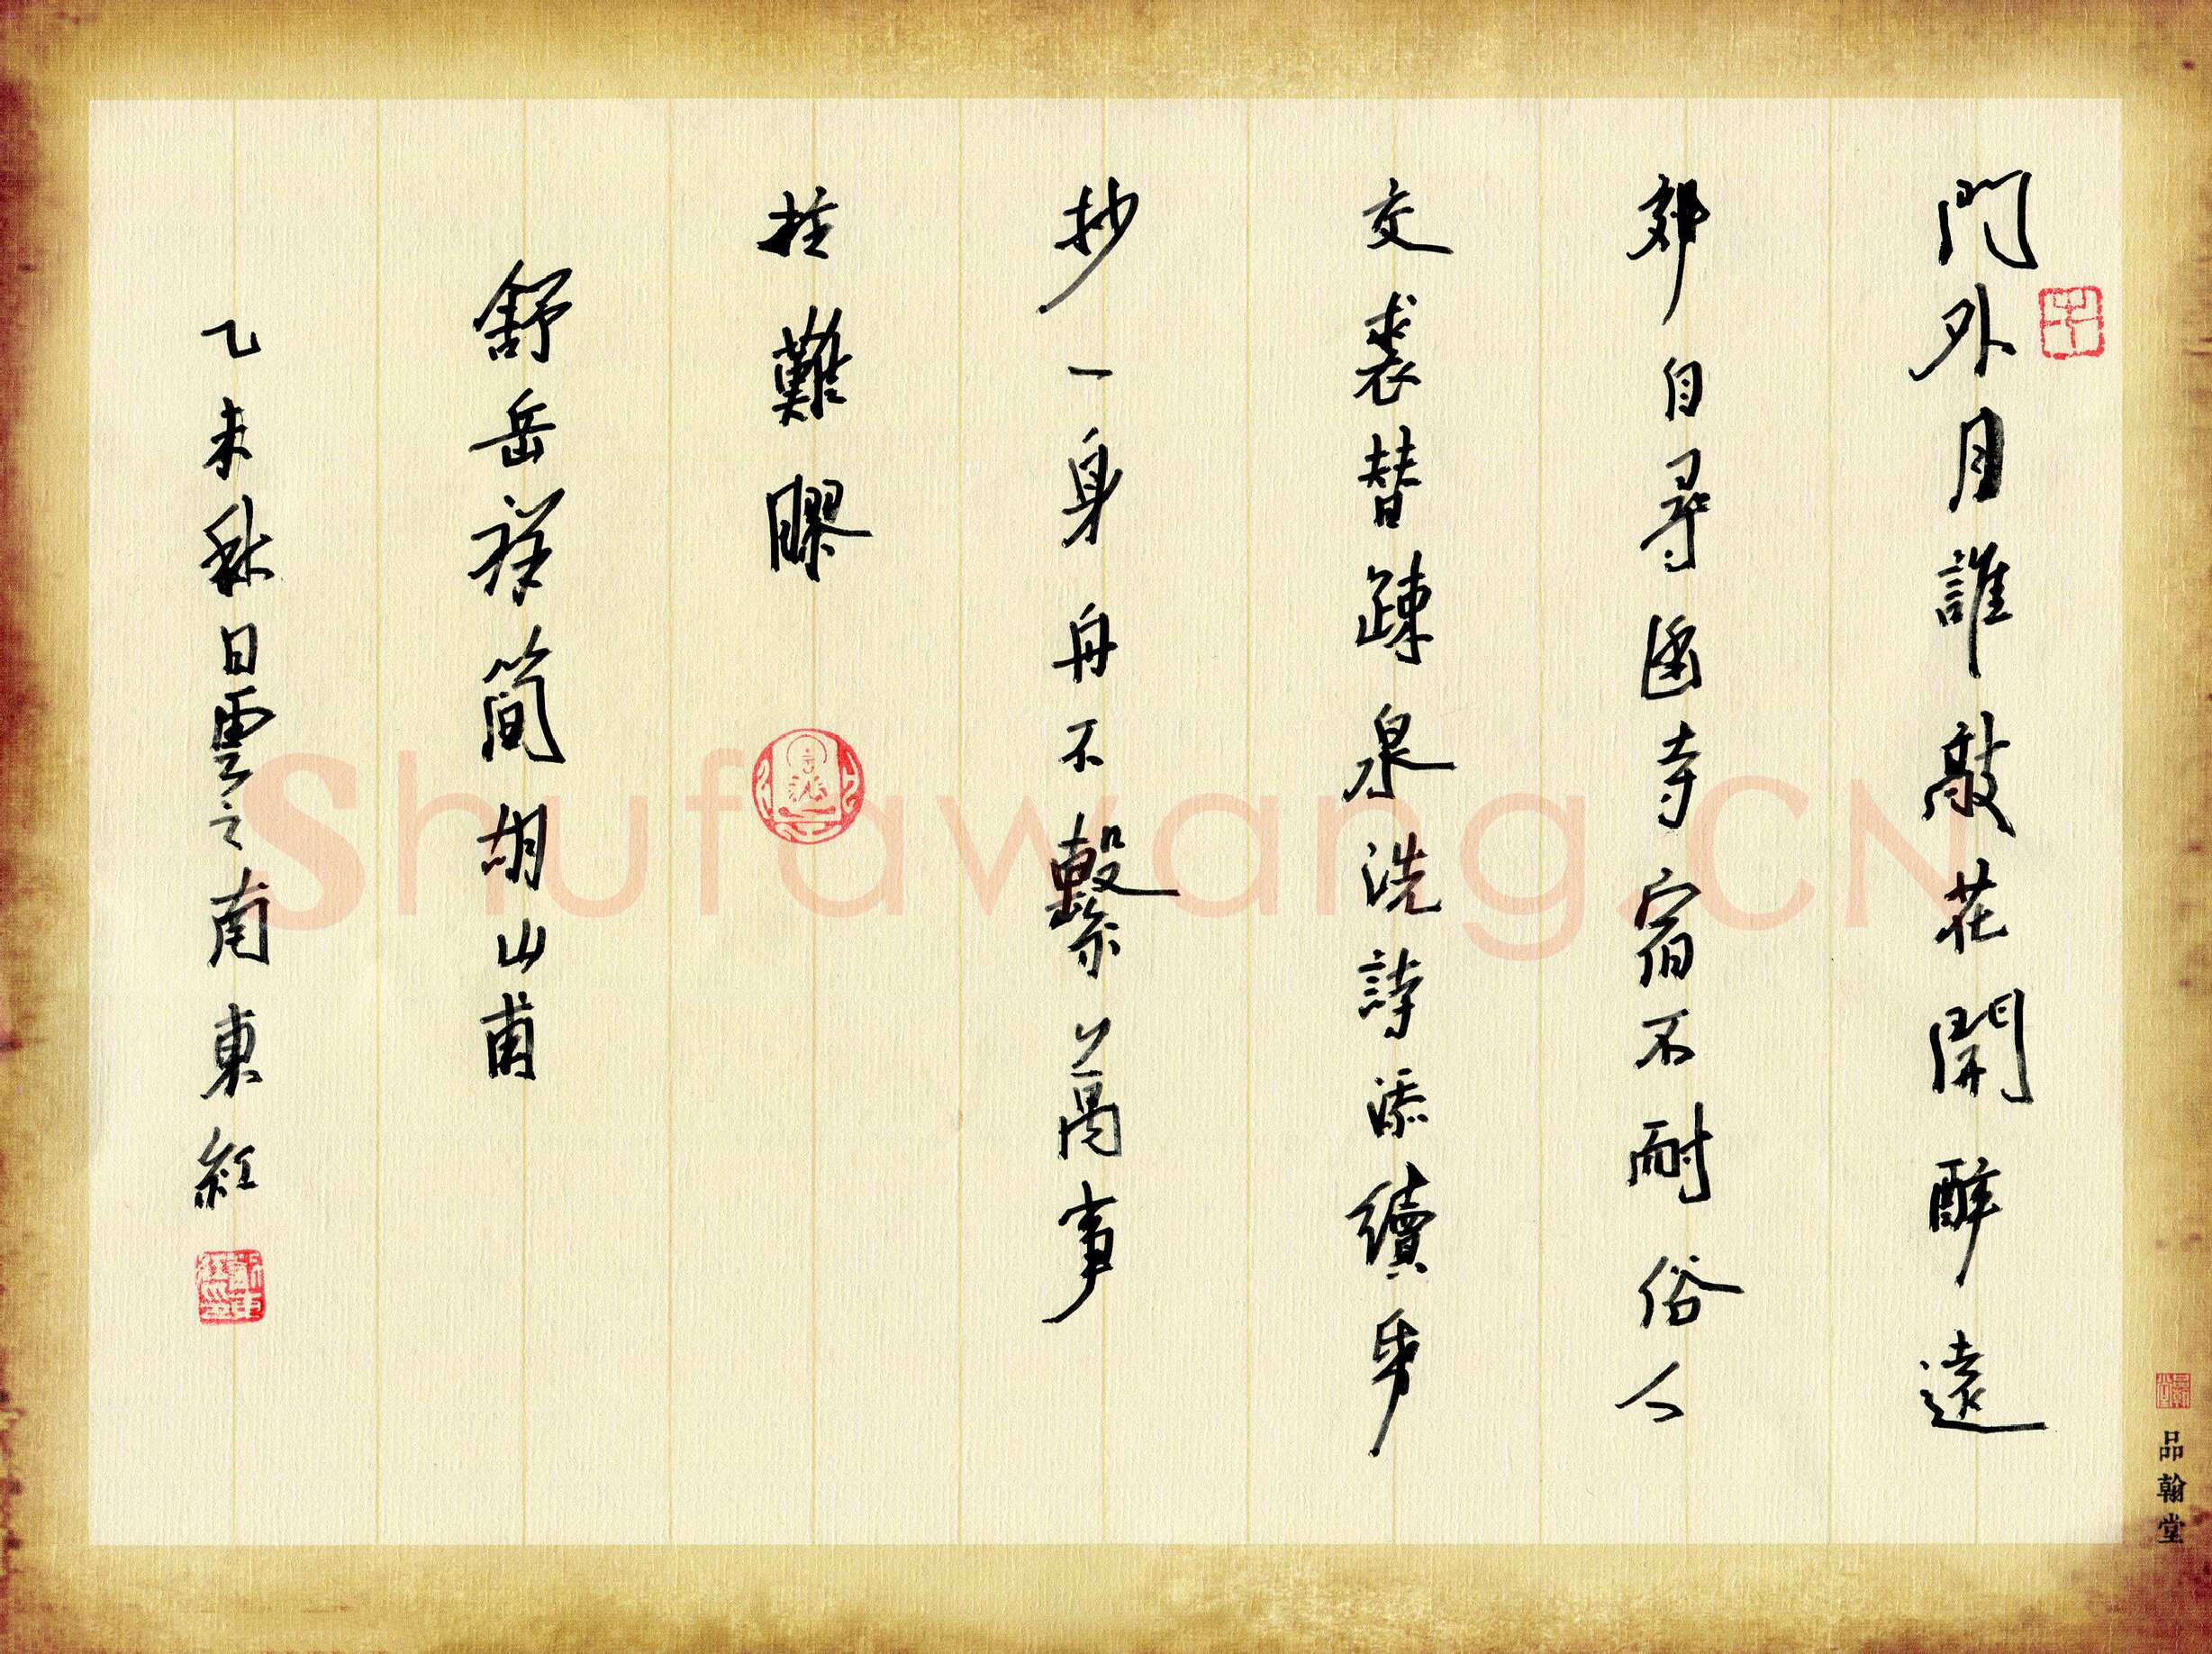 門外月誰敲花開醉遠
郊自尋幽寺宿不耐俗人
交裘替疎泉洗詩添續手
抄一身舟不繫萬事
柱難膠
舒岳祥簡胡山甫
乙未秋日雲之南東紅
品翰堂
Shufawang.CN